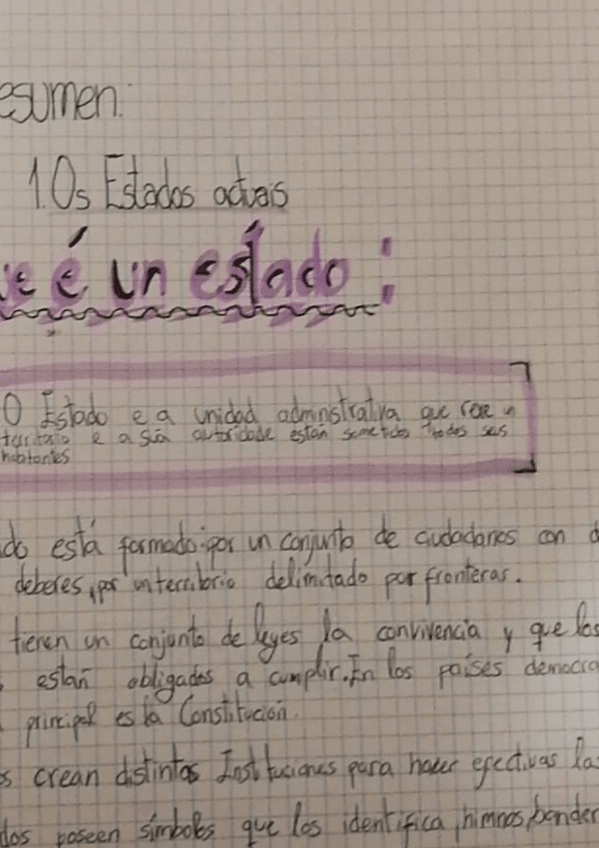 esumen:
1. Os Estados actuais
ue é un estado:
O Estado e a unidad adminstrativa que rexe un
territorio e a súa autoridade están sometidos todos seus
habitantes
do está formado por un conjunto de ciudadanos con d
deberes, por un territorio delimitado por fronteras.
tienen un conjunto de leyes la convivencia y que los
están obligados a cumplir. En los países democra
principal es la Constitución.
s crean distintas Instituciones para hacer efectivas las
dos poseen símbolos que los identifica, himnos, bander